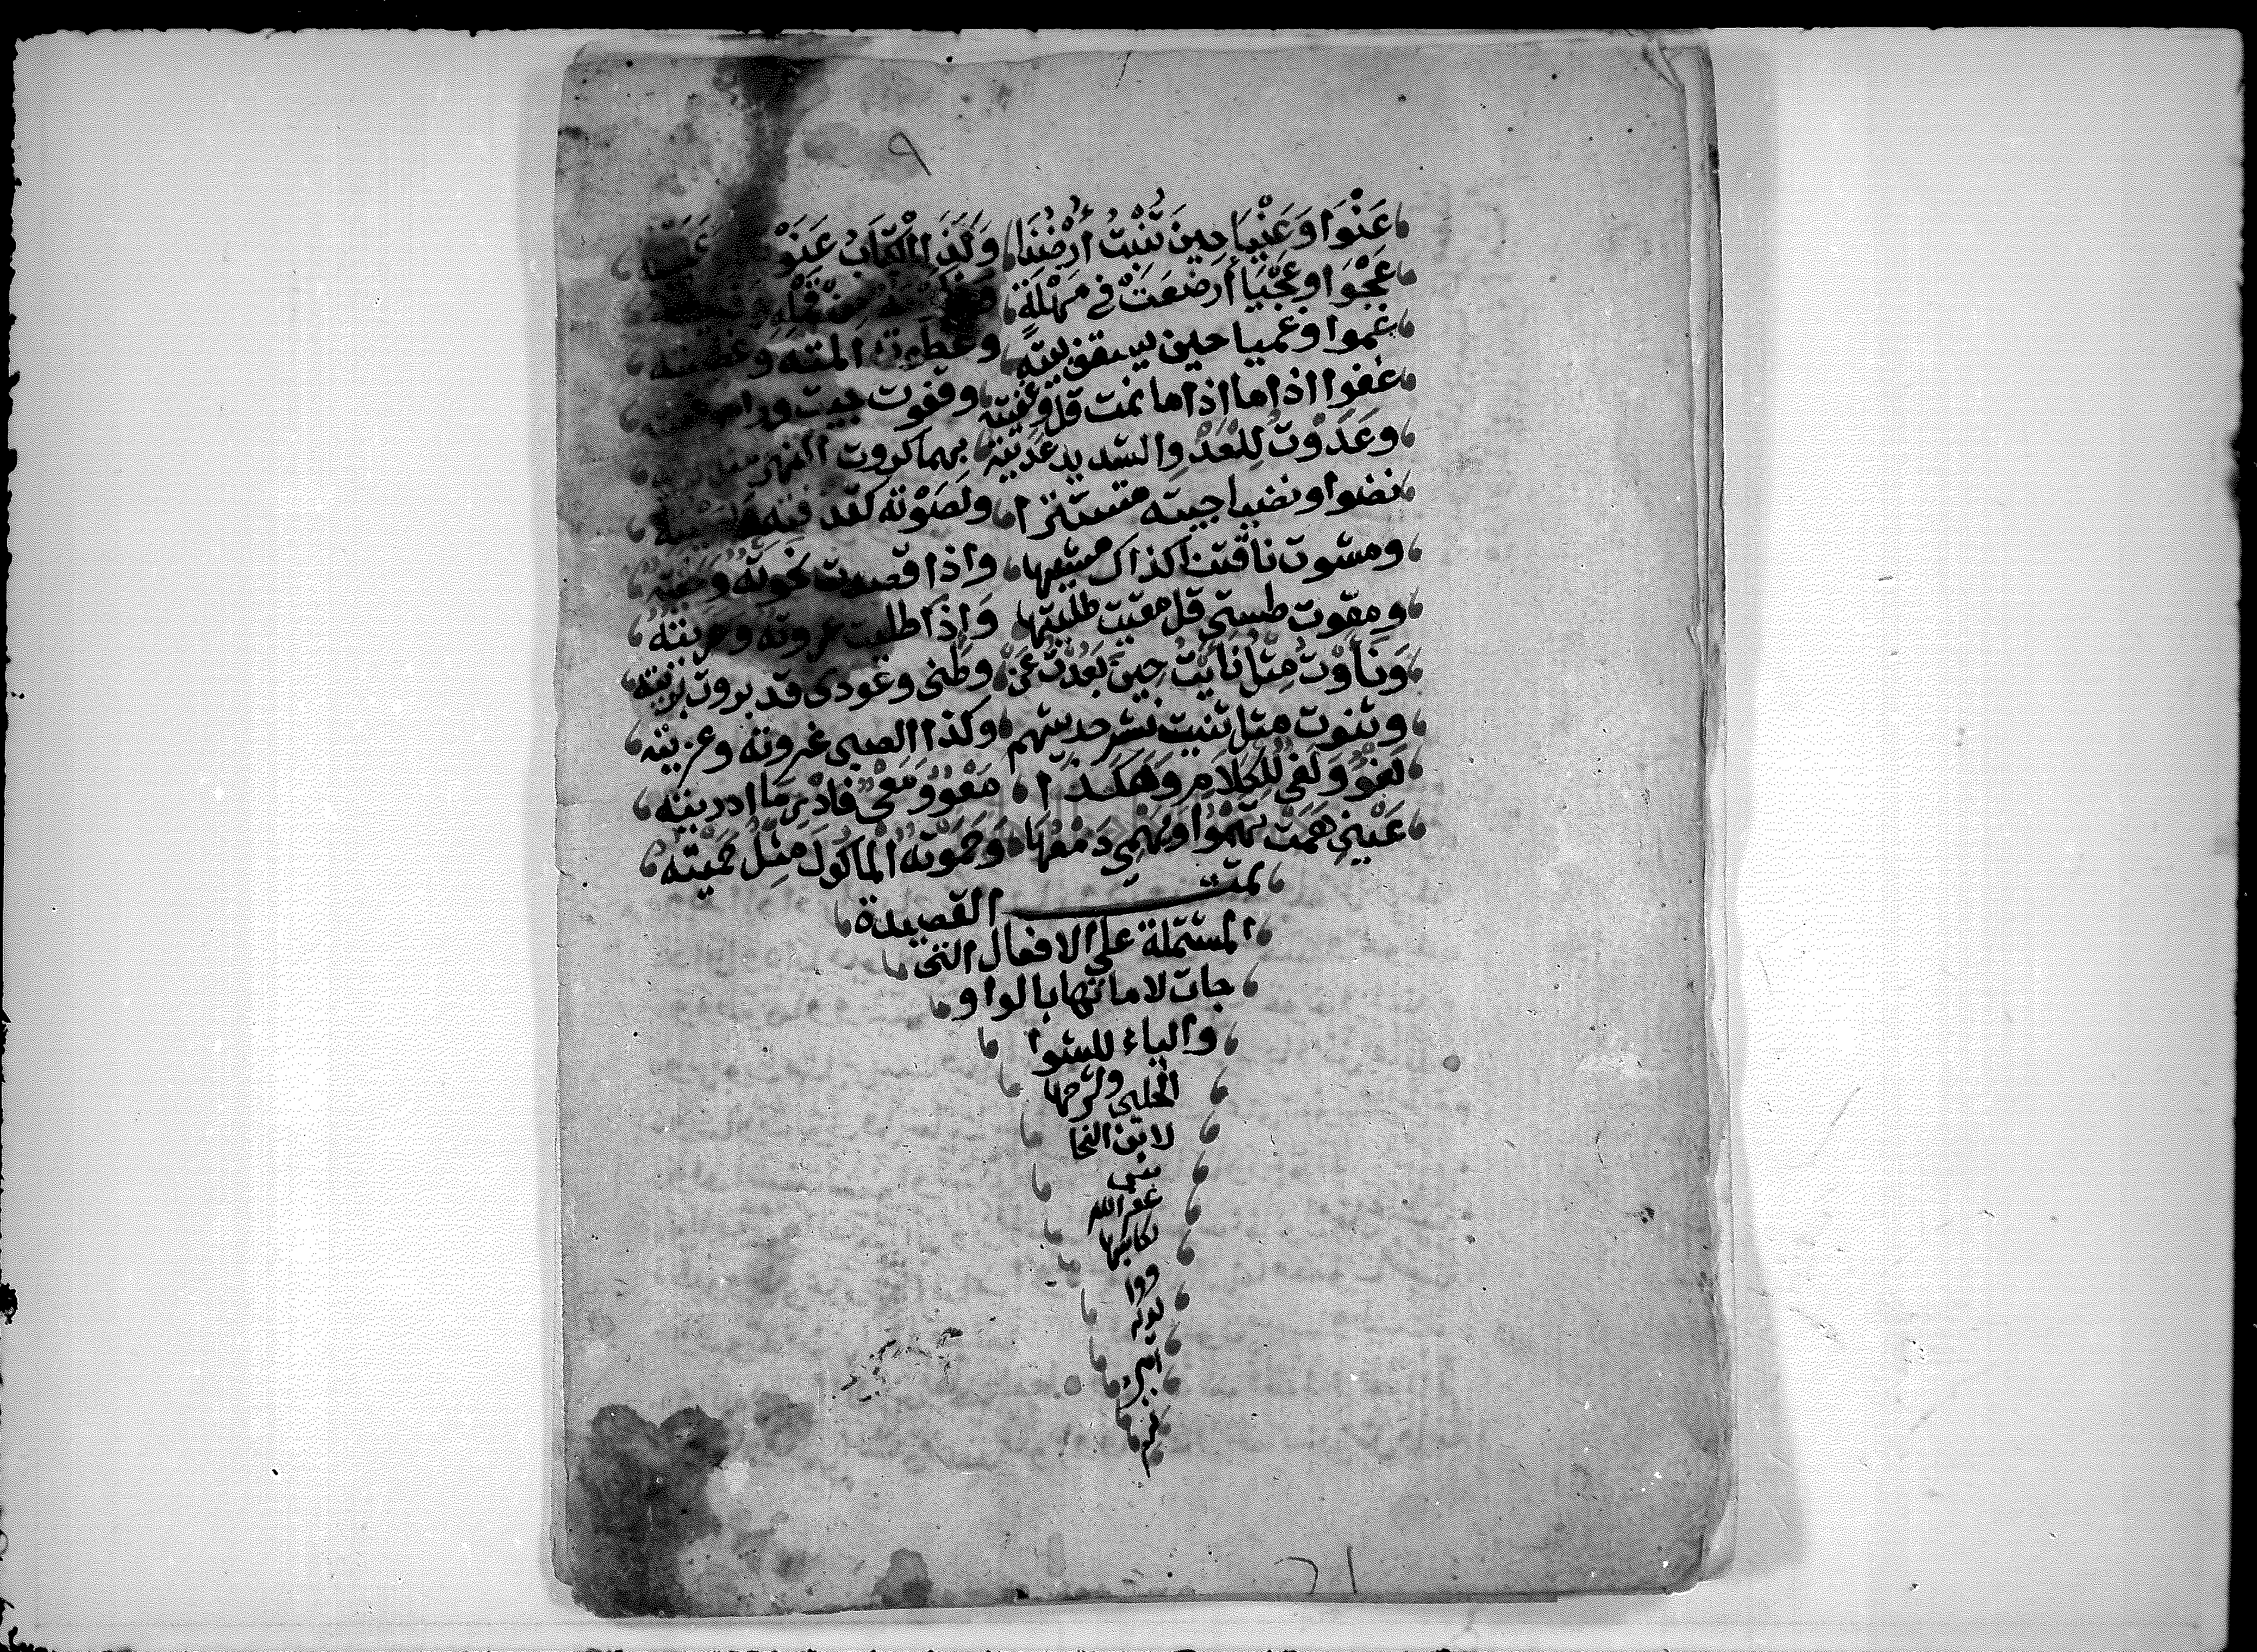 ٩
عَنْوًا وَعَنْيًا حِينَ تُنْبِتُ أَرْضُنَا وَكَذَا الْكِتَابُ عَنَوْ
عَجْوًا وَعَجْيًا أَرْضَعَتْ فِي مُهْلَةٍ
غموا وغميا حين يسقف بيته وعظوته المته
غفوا اذا ما اذا ما نمت قل وغفيته وقفوت جيت ورا
وعَدَوْتُ لِلْعَدْوِ الشديد عَدَيْتُه بهما كروت النهر
نضوا ونضيا جيته متسترا ولصَوْته كقذفته
ومشوت ناقتنا كذاك مشيتها واذا قصدت نحوته ونحيته
ومقوت طستي قل مقيت طلبتها وَاذا طلبت عروته وعريته
وَنَأَوْتُ مِثْلَ نَأَيْتُ حِينَ بَعُدْتُ عَنْ وَطَنى وعودى قد بروت بريته
وثنوت مثل ثنيت نشر حديثهم وكذا الصبى غروته وغريته
لَغْوٌ وَلَغْيٌ لِلْكَلَامِ وَهَكَذَا مَغْوٌ وَمَغْيٌ فَادْرِ مَا ادريته
عَيْنِي هَمَتْ تَهْمُوا وَتَهْمِي دَمْعُهَا وَحَمَوْتُهُ الْمَاكُولَ مِثْلَ حَمَيْتُهُ
تمت القصيدة
المشتملة على الافعال التى
جات لاماتها بالواو
والياء للشوا
الحلبى وشرحها
لابن النحا
س
غفر الله
لكاتبها
ووا
لديه
امين